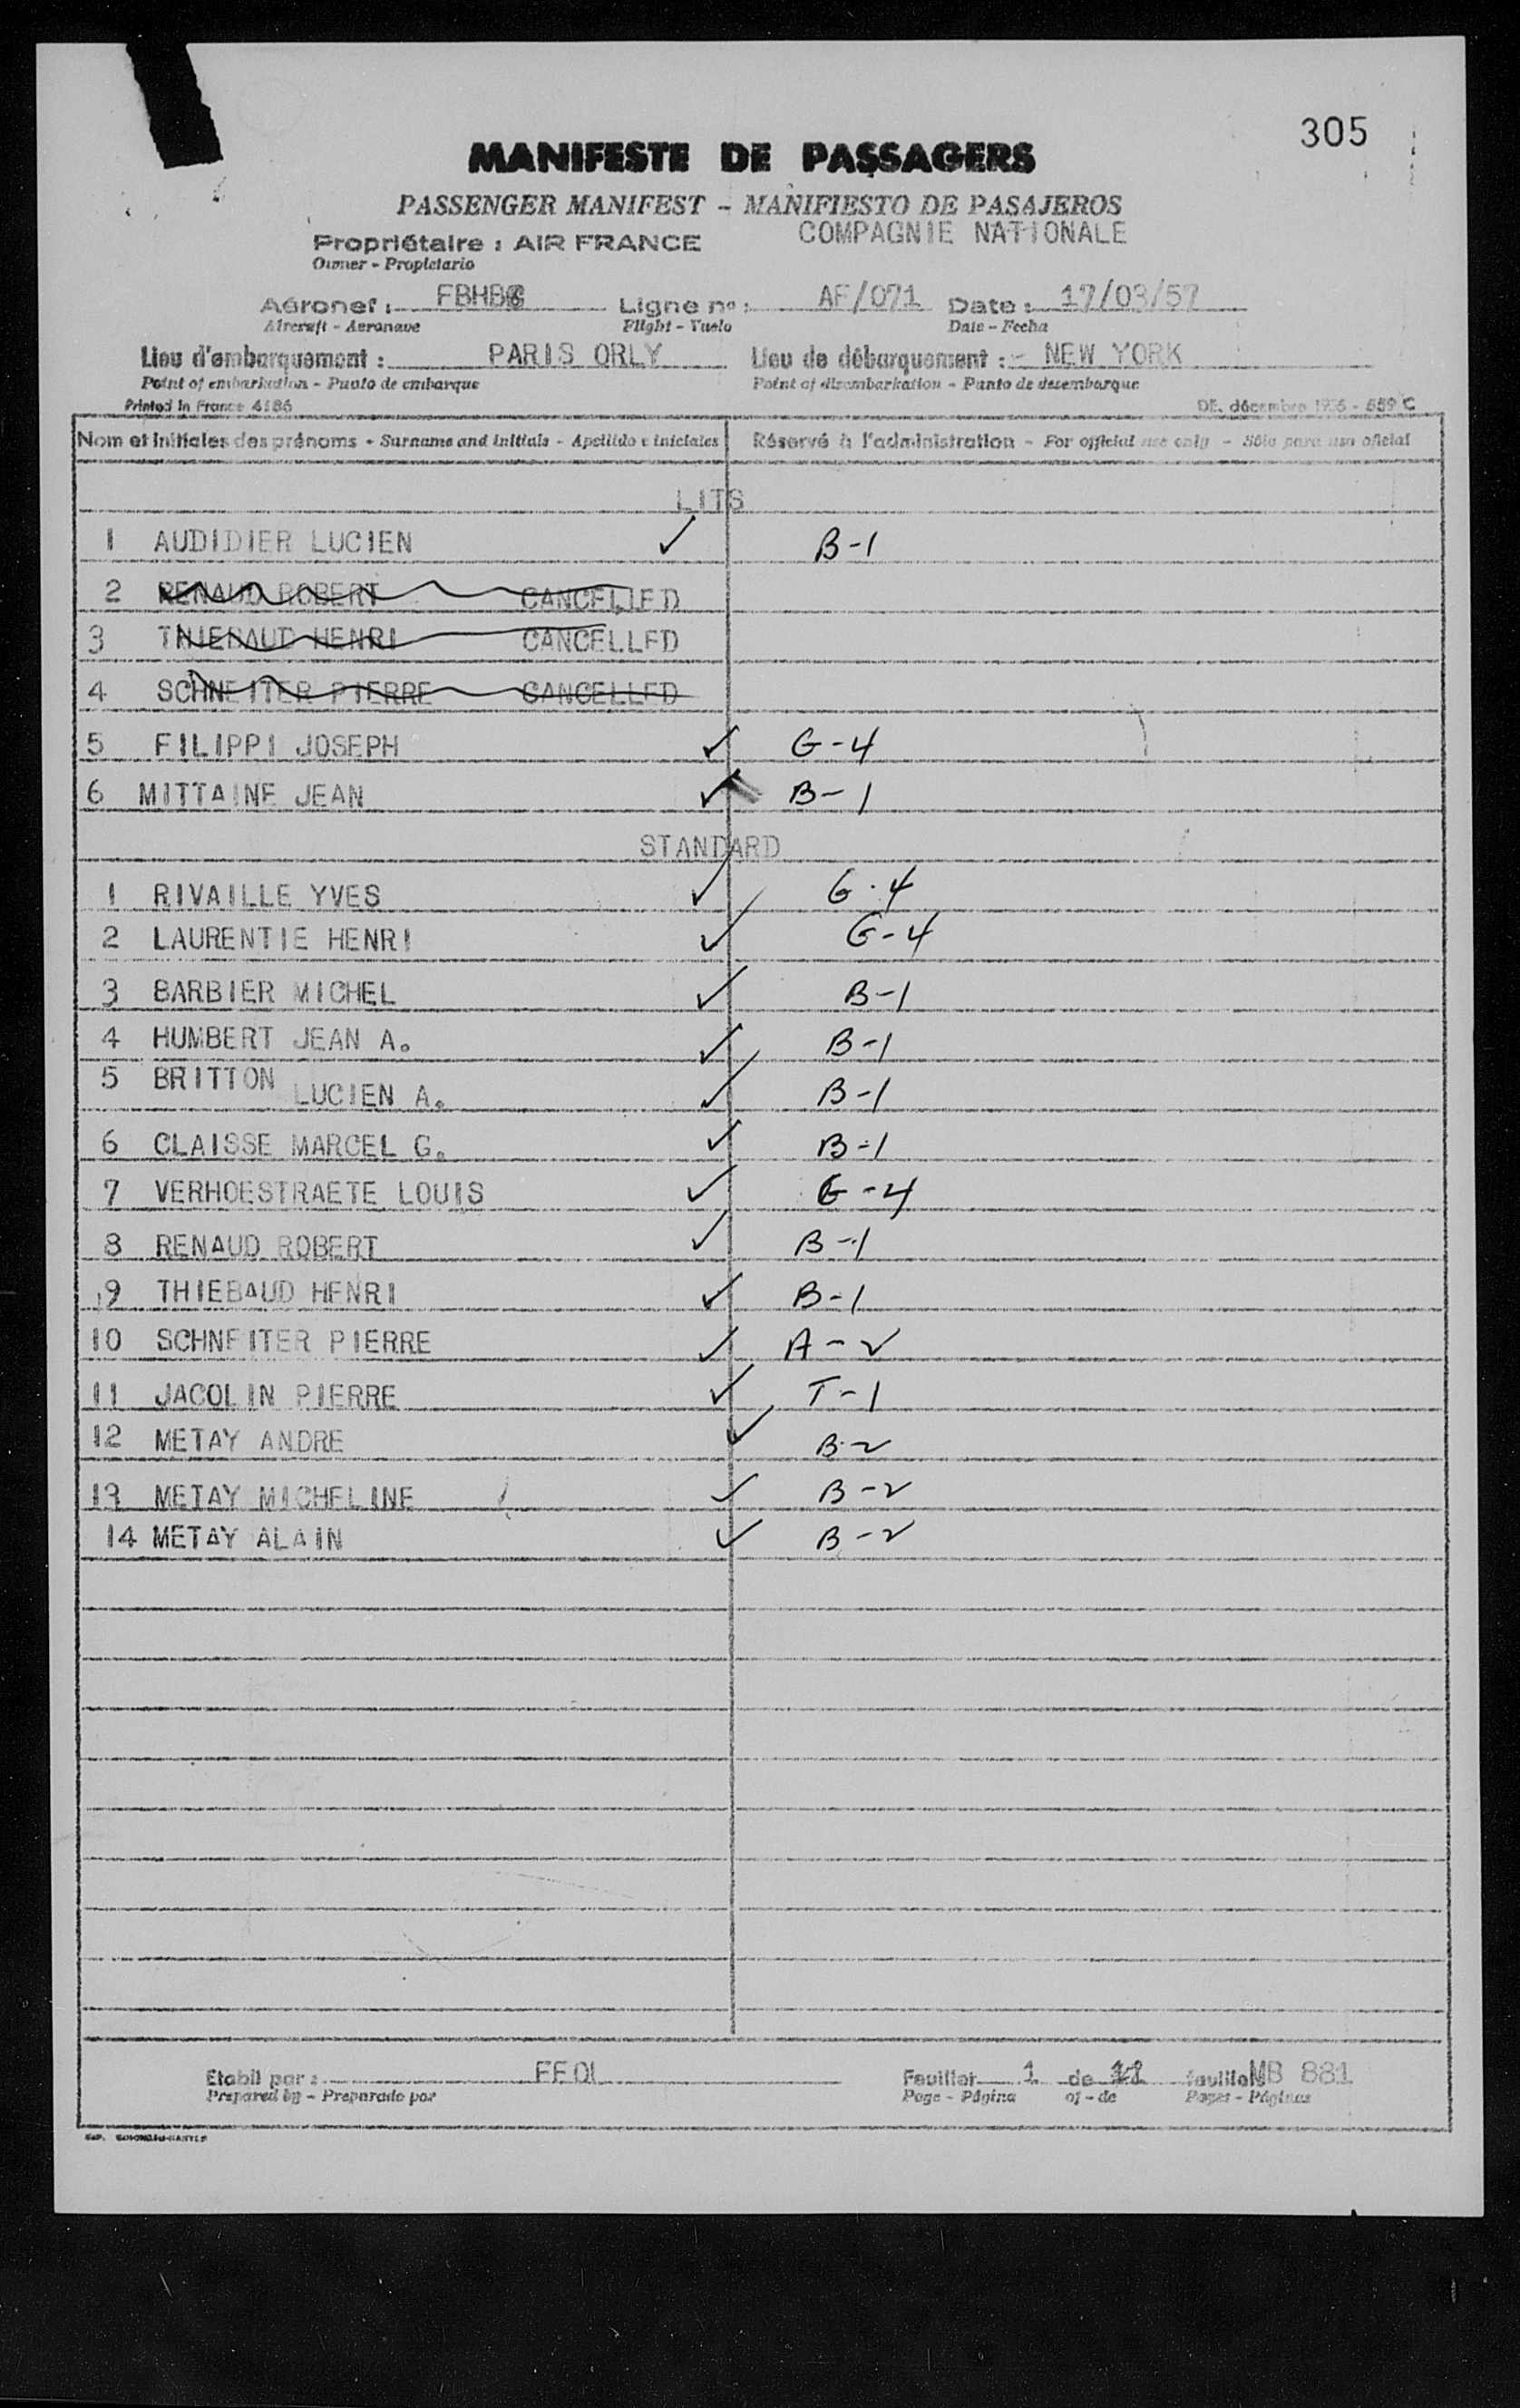 305
MANIFESTE DE PASSAGERS
PASSENGER MANIFEST - MAÑIFIESTO DE PASAJEROS
COMPAGNIE NATIONALE
Propriétaire : AIR FRANCE
Owner - Propietario
Aéronef : FBHB Ligne nº : AF/071 Date : 17/03/57
Aircraft - Aeronave Flight - Vuelo Date - Fecha
Lieu d'embarquement : PARIS ORLY Lieu de débarquement : - NEW YORK
Point of embarkation - Punto de embarque Point of disembarkation - Punto de desembarque
Printed in France 4186 DE. décembre 1956 - 559 C
Nom et initiales des prénoms - Surname and initials - Apellido e iniciales Réservé à l'administration - For official use only - Sólo para uso oficial
LITS
1 AUDIDIER LUCIEN ✓ B-1
2 RENAUD ROBERT CANCELLED
3 THIEBAUD HENRI CANCELLED
4 SCHNEITER PIERRE CANCELLED
5 FILIPPI JOSEPH ✓ G-4
6 MITTAINE JEAN ✓ B-1
STANDARD
1 RIVAILLE YVES ✓ G-4
2 LAURENTIE HENRI ✓ G-4
3 BARBIER MICHEL ✓ B-1
4 HUMBERT JEAN A. ✓ B-1
5 BRITTON LUCIEN A. ✓ B-1
6 CLAISSE MARCEL G. ✓ B-1
7 VERHOESTRAETE LOUIS ✓ G-4
8 RENAUD ROBERT ✓ B-1
9 THIEBAUD HENRI ✓ B-1
10 SCHNEITER PIERRE ✓ A-2
11 JACOLIN PIERRE ✓ T-1
12 METAY ANDRE ✓ B-2
13 METAY MICHELINE ✓ B-2
14 METAY ALAIN ✓ B-2
Etabli par : FEOL Feuillet 1 de feuillets MB 881
Prepared by - Preparado por Page - Página of - de Pages - Páginas